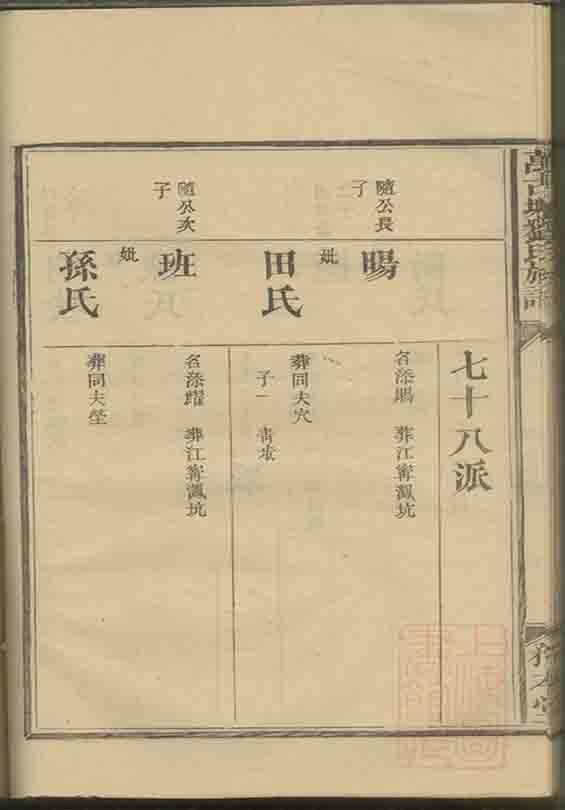 七十八派
隨公長
子
暘
妣
田氏
名添暘 葬江甯瀛坑
葬同夫穴
子一 青
隨公次
子
班
妣
孫氏
名添耀 葬江甯瀛坑
葬同夫塋
氏族譜